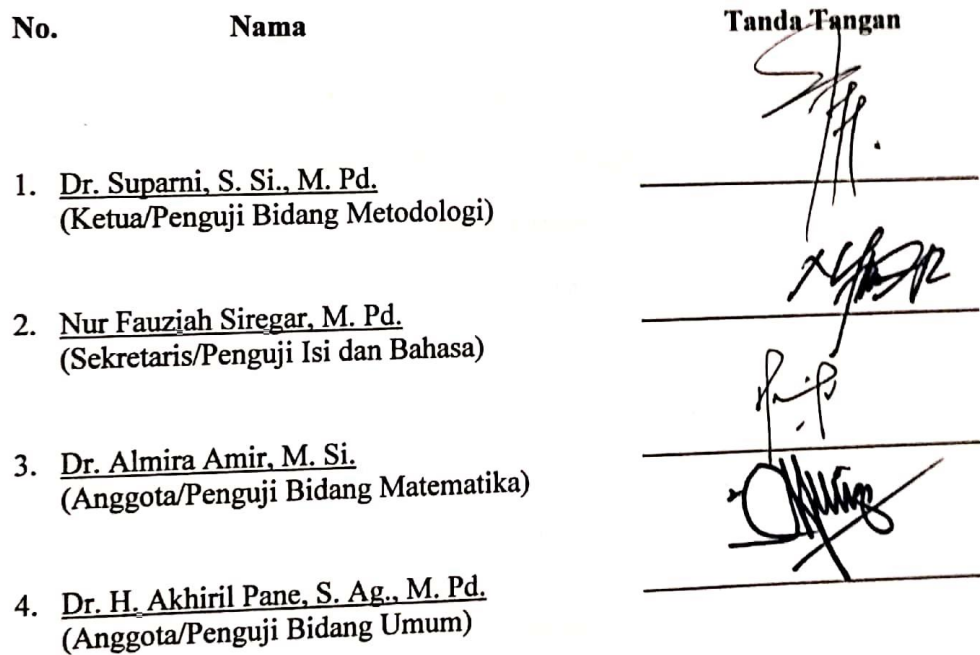 No. Nama Tanda Tangan
1. Dr. Suparni, S. Si., M. Pd.
(Ketua/Penguji Bidang Metodologi)
2. Nur Fauziah Siregar, M. Pd.
(Sekretaris/Penguji Isi dan Bahasa)
3. Dr. Almira Amir, M. Si.
(Anggota/Penguji Bidang Matematika)
4. Dr. H. Akhiril Pane, S. Ag., M. Pd.
(Anggota/Penguji Bidang Umum)